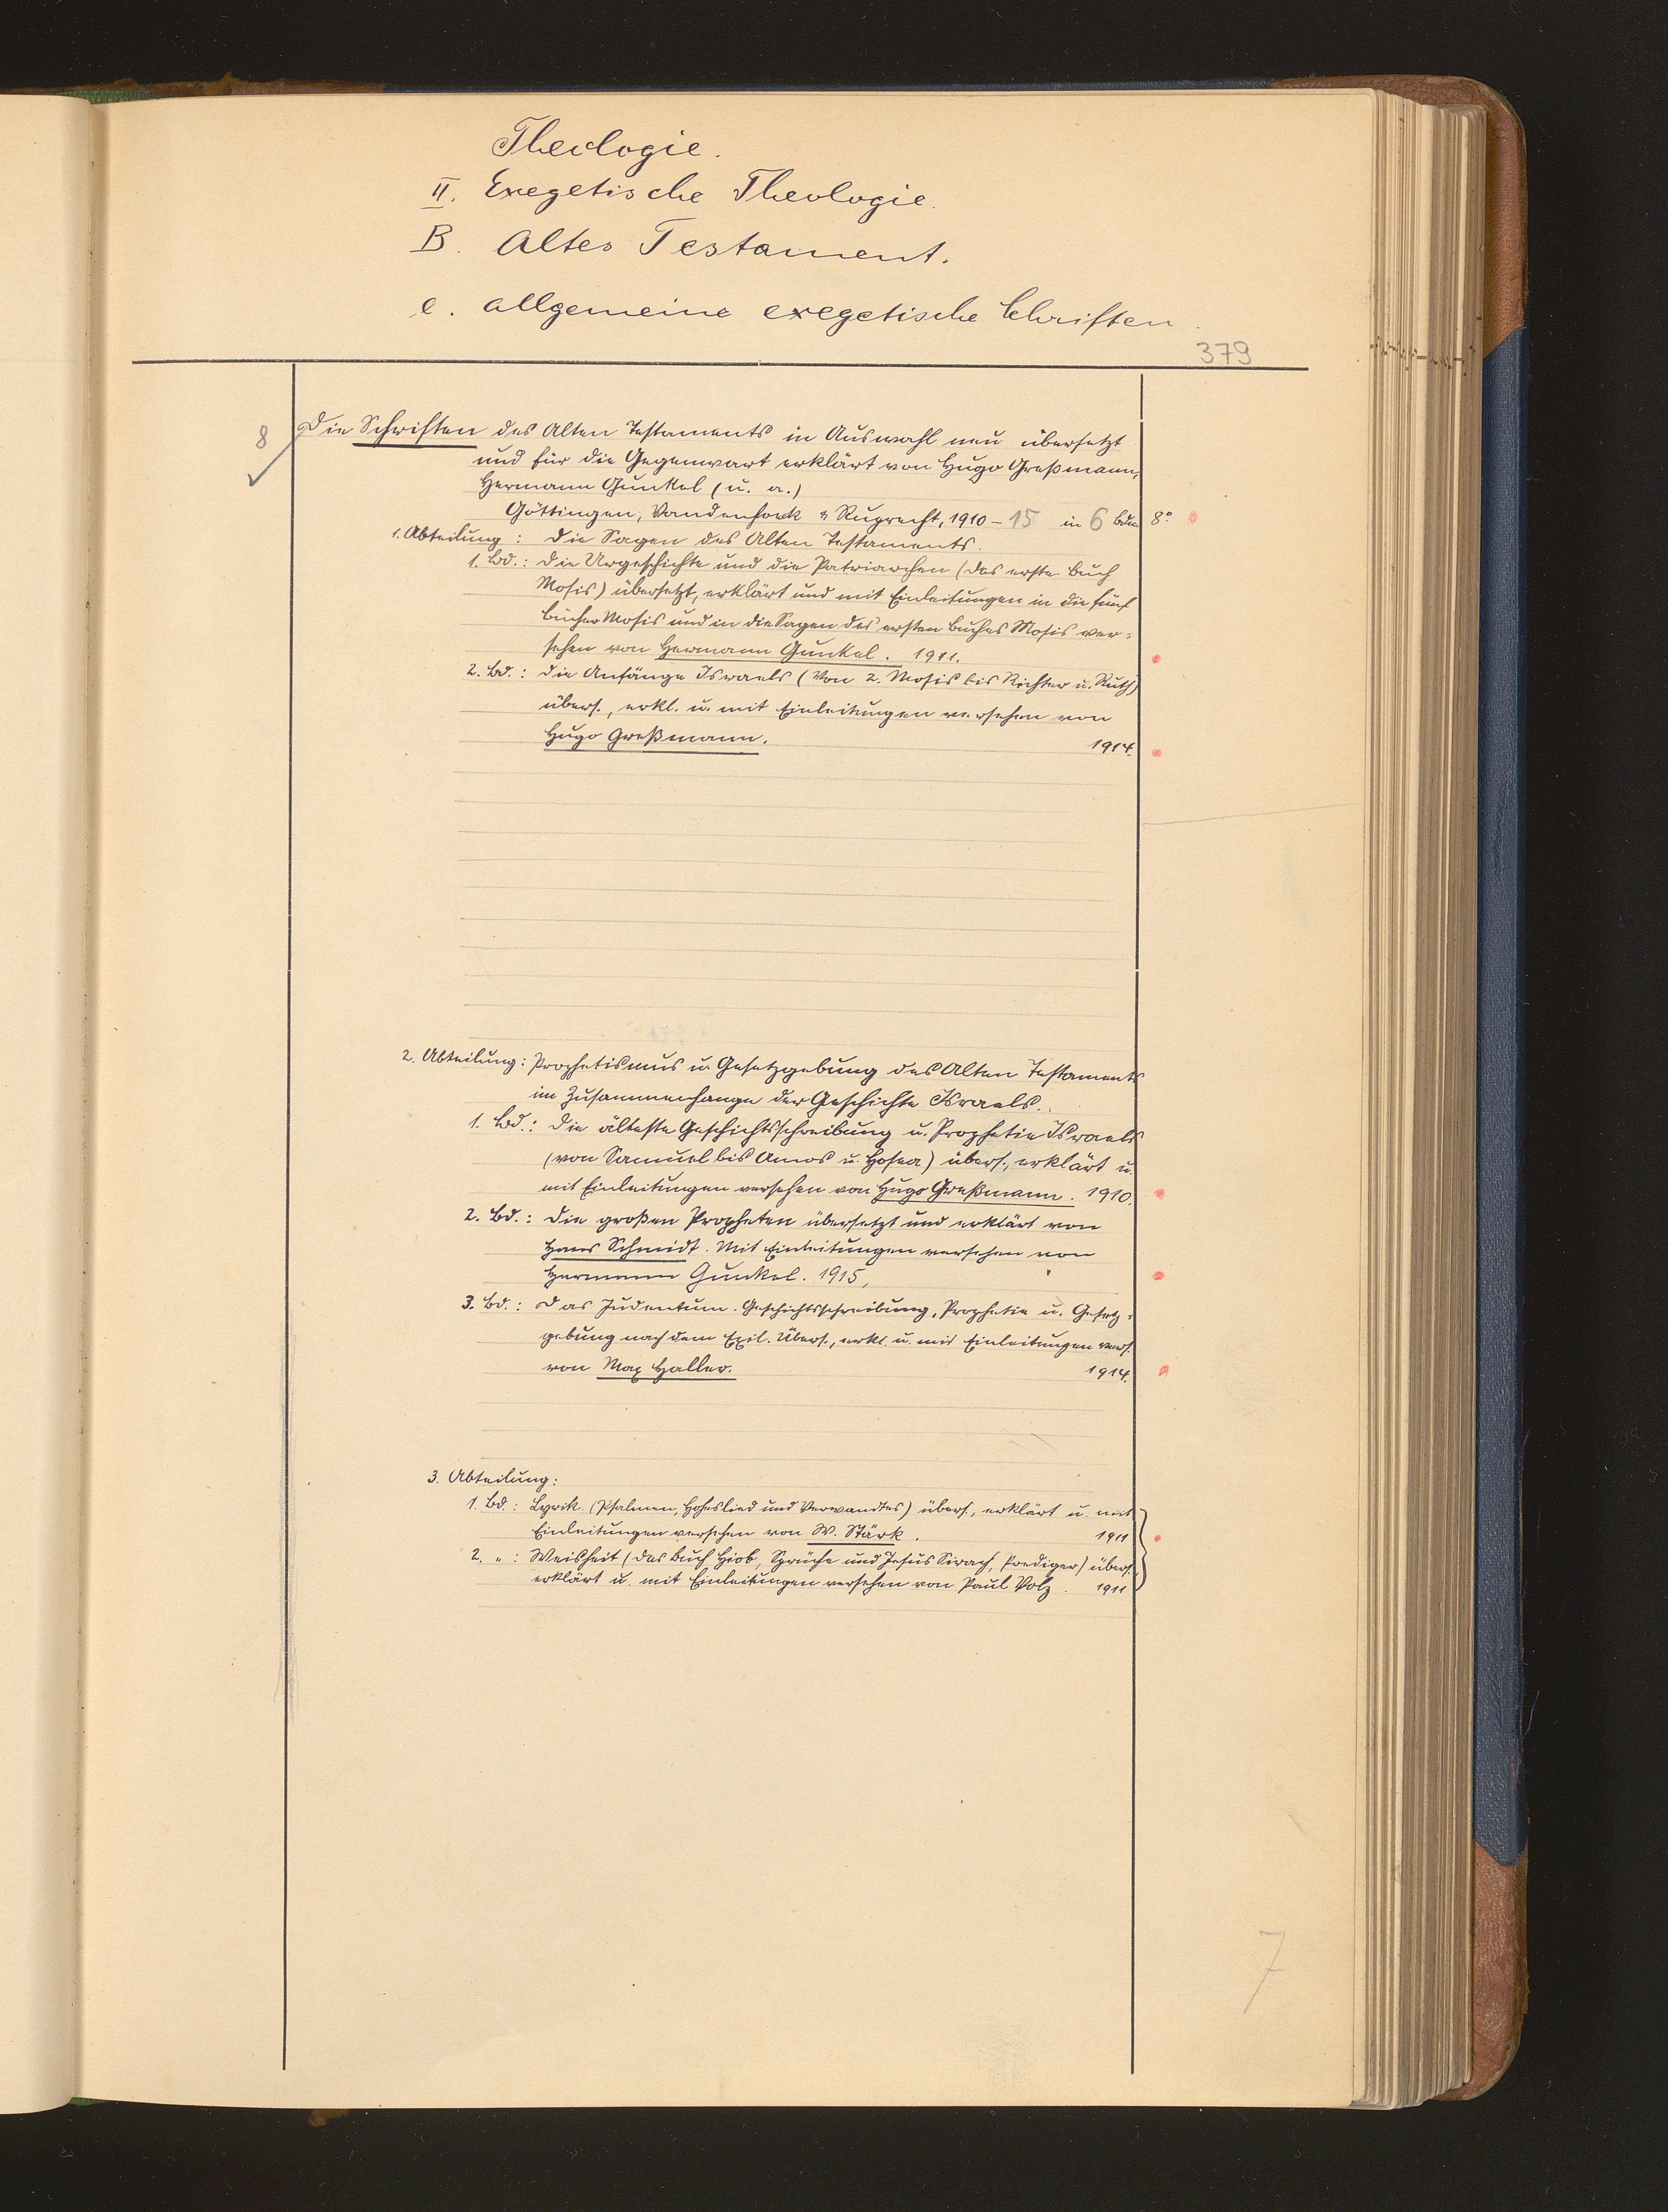 Theologie.
II. Exegetische Theologie.
B. Altes Testament.
e. allgemeine exegetische Schriften.
379
8 Die Schriften des Alten Testaments in Auswahl neu übersetzt
und für die Gegenwart erklärt von Hugo Greßmann,
Hermann Gunkel (u. a.)
Göttingen, Vandenhoeck & Ruprecht, 1910-15 in 6 Bdn 8°
1. Abteilung: Die Sagen des Alten Testaments.
1. Bd.: Die Urgeschichte und die Patriarchen (das erste Buch
Mosis) übersetzt, erklärt und mit Einleitungen in die fünf
Bücher Mosis und in die Sagen des ersten Buches Mosis ver-
sehen von Hermann Gunkel. 1911.
2. Bd.: Die Anfänge Israels (Von 2. Mosis bis Richter u. Ruth)
übers., erkl. u. mit Einleitungen versehen von
Hugo Greßmann. 1914.
2. Abteilung: Prophetismus u. Gesetzgebung des Alten Testaments
im Zusammenhange der Geschichte Israels.
1. Bd.: Die älteste Geschichtsschreibung u. Prophetie Israels
(von Samuel bis Amos u. Hosea) übers., erklärt u.
mit Einleitungen versehen von Hugo Greßmann. 1910.
2. Bd.: Die großen Propheten übersetzt und erklärt von
Hans Schmidt. Mit Einleitungen versehen von
Hermann Gunkel. 1915,
3. Bd.: Das Judentum. Geschichtsschreibung, Prophetie u. Gesetz-
gebung nach dem Exil. Übers., erkl. u. mit Einleitungen vers.
von Max Haller. 1914.
3. Abteilung:
1. Bd: Lyrik. (Psalmen, Hoheslied und Verwandtes) übers., erklärt u. mit
Einleitungen versehen von W. Stärk. 1911
2. " : Weisheit (das Buch Hiob, Sprüche und Jesus Sirach, Prediger) übers.,
erklärt u. mit Einleitungen versehen von Paul Volz. 1911
7